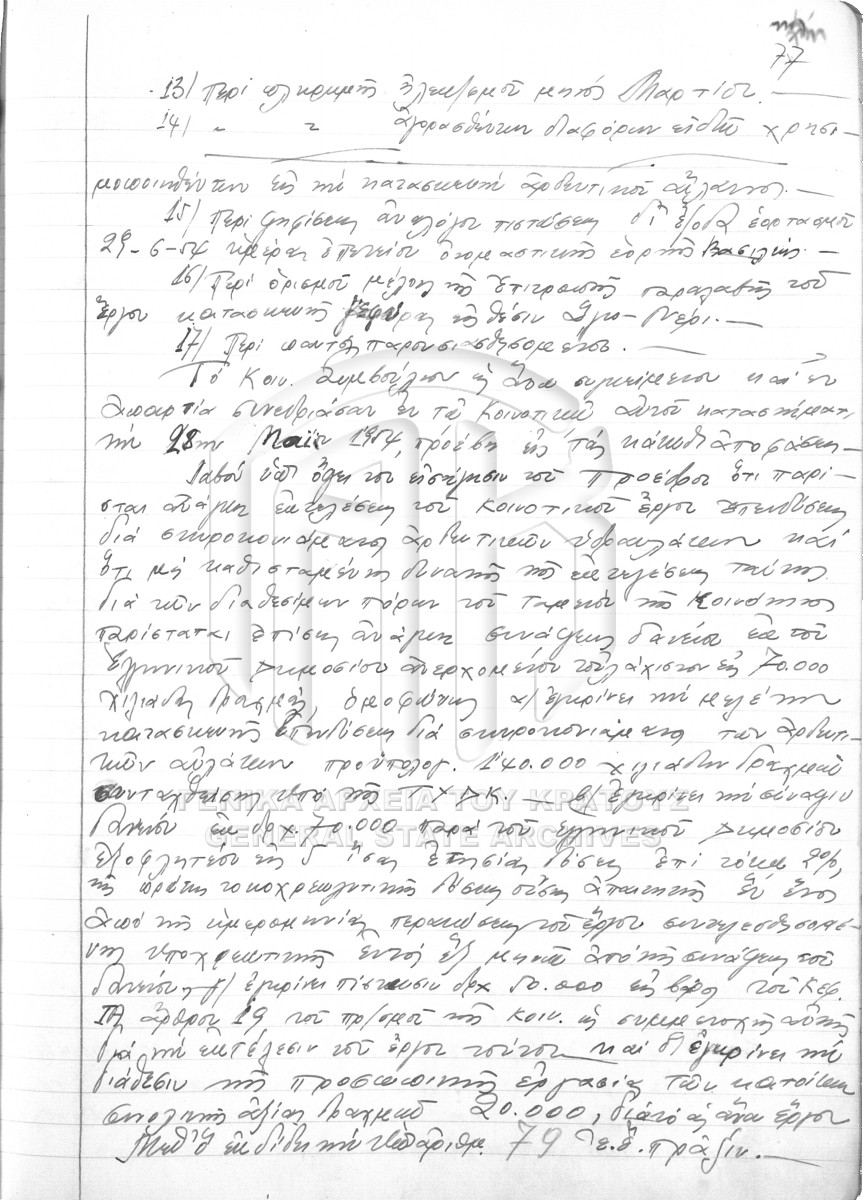 77
13/ Περί πληρωμής ηλεκ/σμού μηνός Μαρτίου. —
14/ " " αγορασθέντων διαφόρων ειδών χρησι-
μοποιηθέντων εις την κατασκευήν αρδευτικού αύλακος. —
15/ Περί ψηφίσεως αναλόγου πιστώσεως δι' έξοδα εορτασμού
29-6-54 ημέρας επετείου ονομαστικής εορτής Βασιλέως. —
16/ Περί ορισμού μέλους της Επιτροπής παραλαβής του
έργου κατασκευής γεφύρας εις θέσιν Άγιο-Νέρι. —
17/ Περί παντός παρουσιασθησομένου. —
Τό Κοιν. Συμβούλιον ως άνω συγκείμενον και εν
απαρτία συνεδριάσαν εν τω Κοινοτικώ αυτού καταστήματι
την 28ην Μαΐου 1954, προέβη εις τας κάτωθι αποφάσεις —
Λαβόν υπ' όψει του εισήγησιν του Προέδρου ότι παρί-
σταται ανάγκη εκτελέσεως του κοινοτικού έργου επενδύσεως
διά σκυροκονιάματος αρδευτικών υδραυλάκων και
ότι μη καθισταμένης δυνατής της εκτελέσεως ταύτης
διά των διαθεσίμων πόρων του Ταμείου της Κοινότητος
παρίσταται επίσης ανάγκη συνάψεως δανείου εκ του
Ελληνικού Δημοσίου ανερχομένου τουλάχιστον εις 70.000
χιλιάδας δραχμάς, ομοφώνως α/ εγκρίνει την μελέτην
κατασκευής επενδύσεως διά σκυροκονιάματος των αρδευτι-
κών αυλάκων προϋπολογ. 140.000 χιλιάδων δραχμών
συνταχθείσης υπό της Τ.Υ.Δ.Κ. — β/ Εγκρίνει την σύναψιν
δανείου εκ δρχ. 70.000 παρά του Ελληνικού Δημοσίου
εξοφλητέου εις 5 ίσας ετησίας δόσεις επί τόκω 2%,
της πρώτης τοκοχρεωλυτικής δόσεως ούσης απαιτητής εν έτος
από της ημερομηνίας περατώσεως του έργου συντελεσθησομέ-
νης υποχρεωτικής εντός έξ μηνών από της συνάψεως του
δανείου, γ/ εγκρίνει πίστωσιν δρχ 50.000 εις βάρος του Κεφ.
άρθρου 19 του πρ/σμού της κοιν. ως συμμετοχή αυτής
διά την εκτέλεσιν του έργου τούτου και δ/ εγκρίνει την
διάθεσιν της προσωπικής εργασίας των κατοίκων
συνολικής αξίας δραχμών 20.000, διά το ως άνω έργον
Μεθ' ό εκδίδει την υπ' αριθμ. 79 ε.έ. πράξιν. —
ΓΕΝΙΚΑ ΑΡΧΕΙΑ ΤΟΥ ΚΡΑΤΟΥΣ
GENERAL STATE ARCHIVES